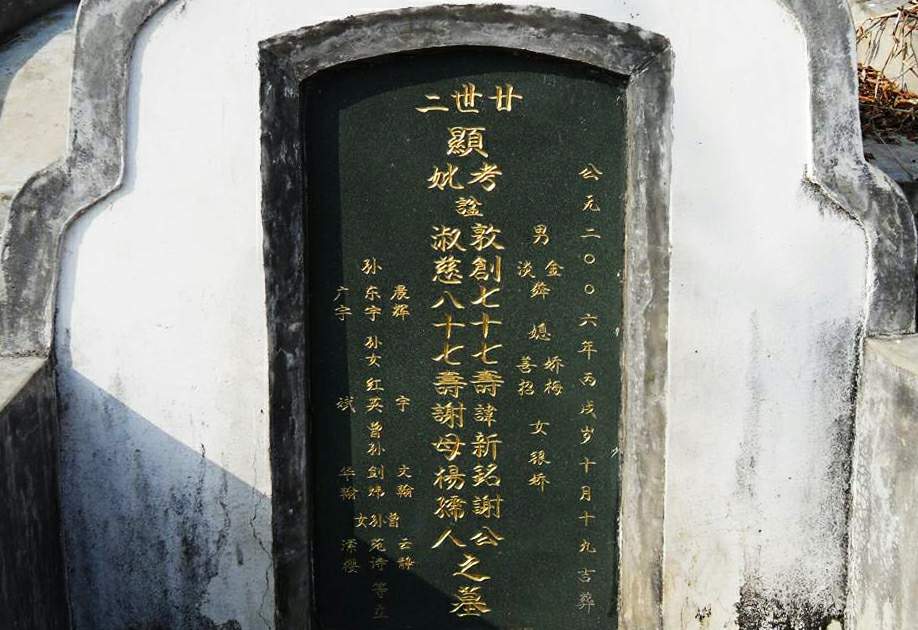 廿世二
顯
考妣
諡
敦創七十七壽諱新銘謝公
淑慈八十七壽謝母楊孺人
之墓
公元二〇〇六年丙戌岁十月十九吉葬
男 金淡
媳 娇梅 善招
女 银娇
孙 晨辉 东宇 广宇
孙女 红英
宇
斌
曾孙 文翰 剑炜 华翰
曾孙女 云静 苑诗
等立